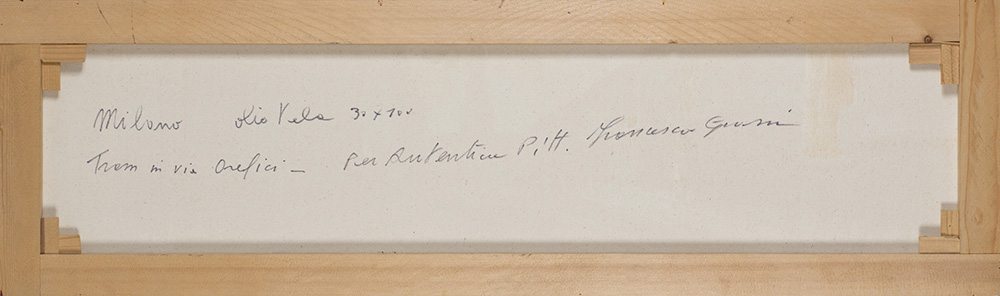 Milano olio Tela 30x100
Tram in via Orefici - Per Autentica Pitt. Francesco